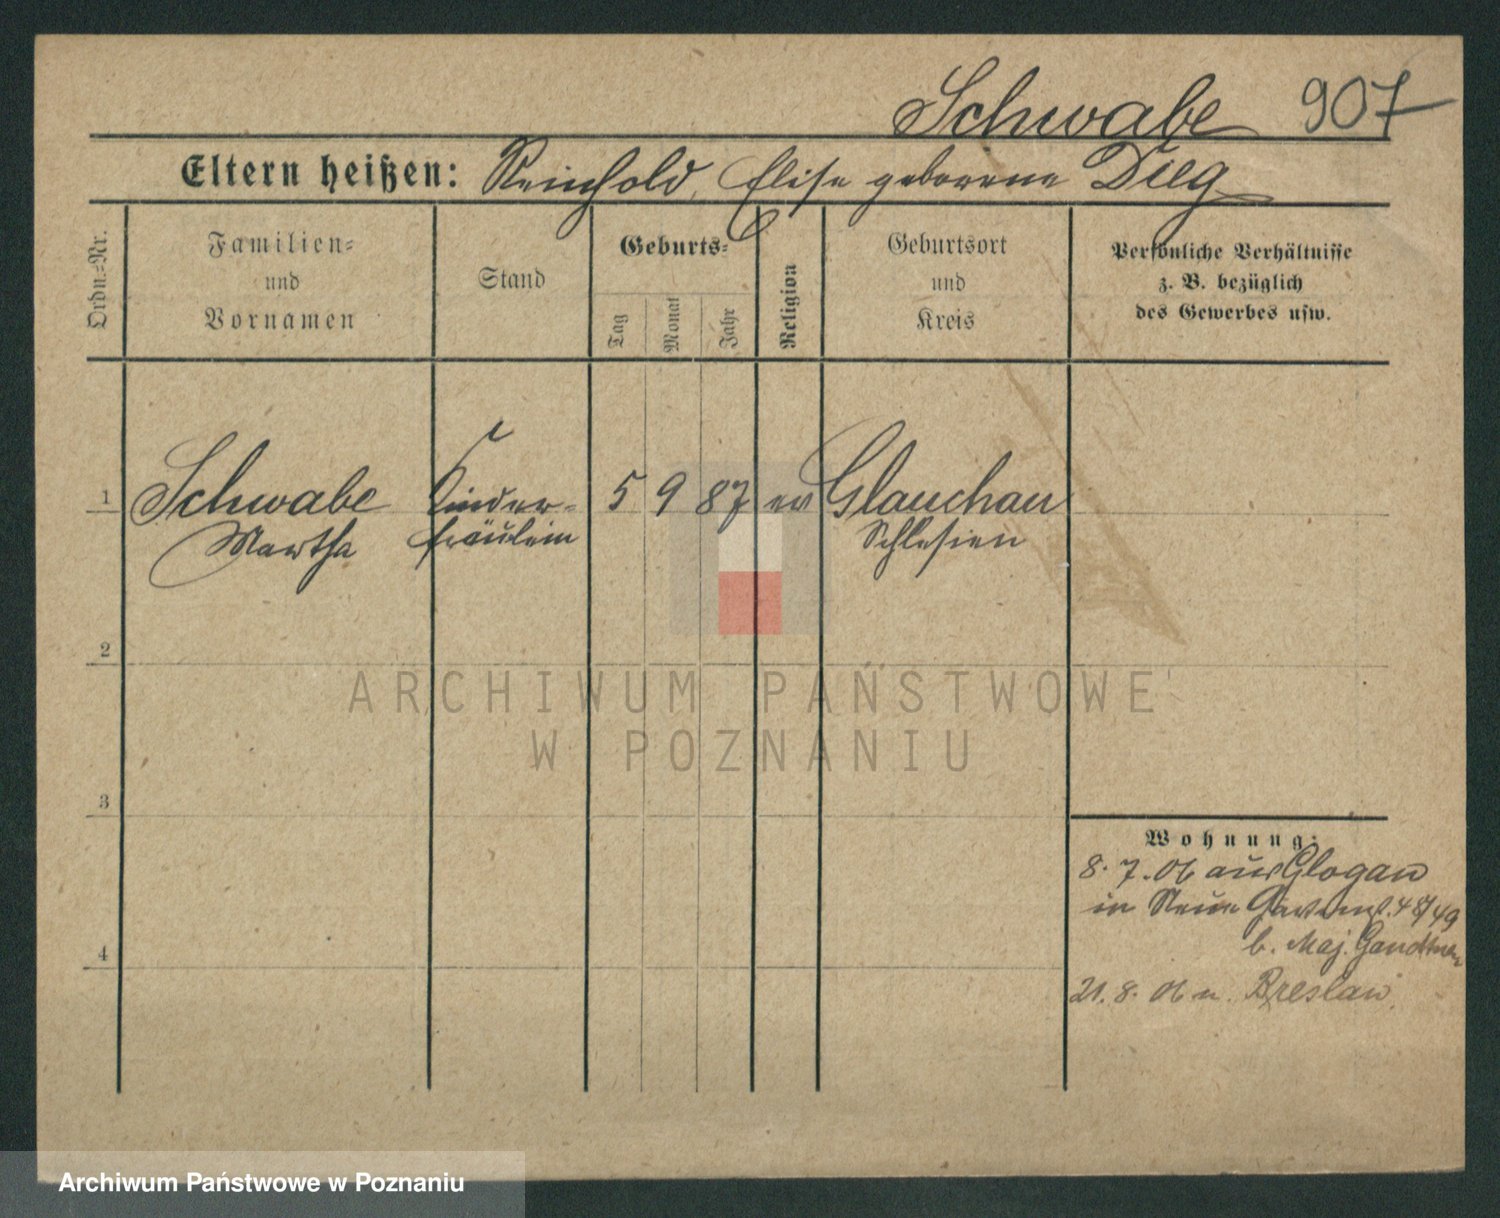 Schwabe 907
Eltern heißen: Reinhold, Elise geborene Dieg
Ordn.=Nr.
Familien=
und
Vornamen
Stand
Geburts=
Tag
Monat
Jahr
Religion
Geburtsort
und
Kreis
Persönliche Verhältnisse
z. B. bezüglich
des Gewerbes usw.
1 Schwabe Kinder= 5 9 87 ev Glauchau
Martha fräulein Schlesien
2
ARCHIWUM PAŃSTWOWE
W POZNANIU
3
Wohnung:
8. 7. 06 aus Glogau
in Neue Gartenst. 48/49
b. Maj.
4
21. 8. 06 n. Breslau
Archiwum Państwowe w Poznaniu